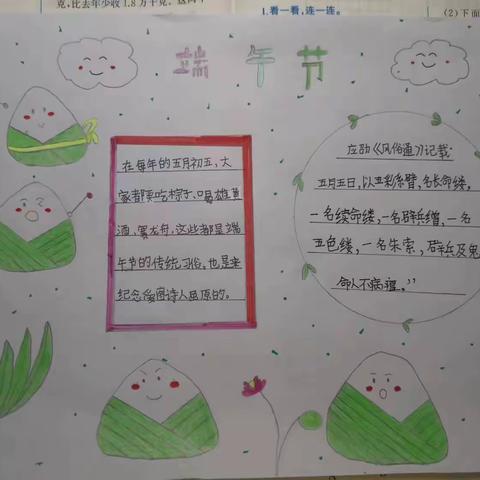 克，比去年少收1.8万千克。
1.看一看，连一连。
(2) 下面
端午节
在每年的五月初五，大
家都要吃粽子、喝雄黄
酒，赛龙舟，这些都是端
午节的传统习俗，也是来
纪念爱国诗人屈原的。
应劭《风俗通》记载：
五月五日，以五彩丝臂，名长命缕，
一名续命缕，一名辟兵缯，一名
五色缕，一名朱索，辟兵及鬼
命人不病瘟。”